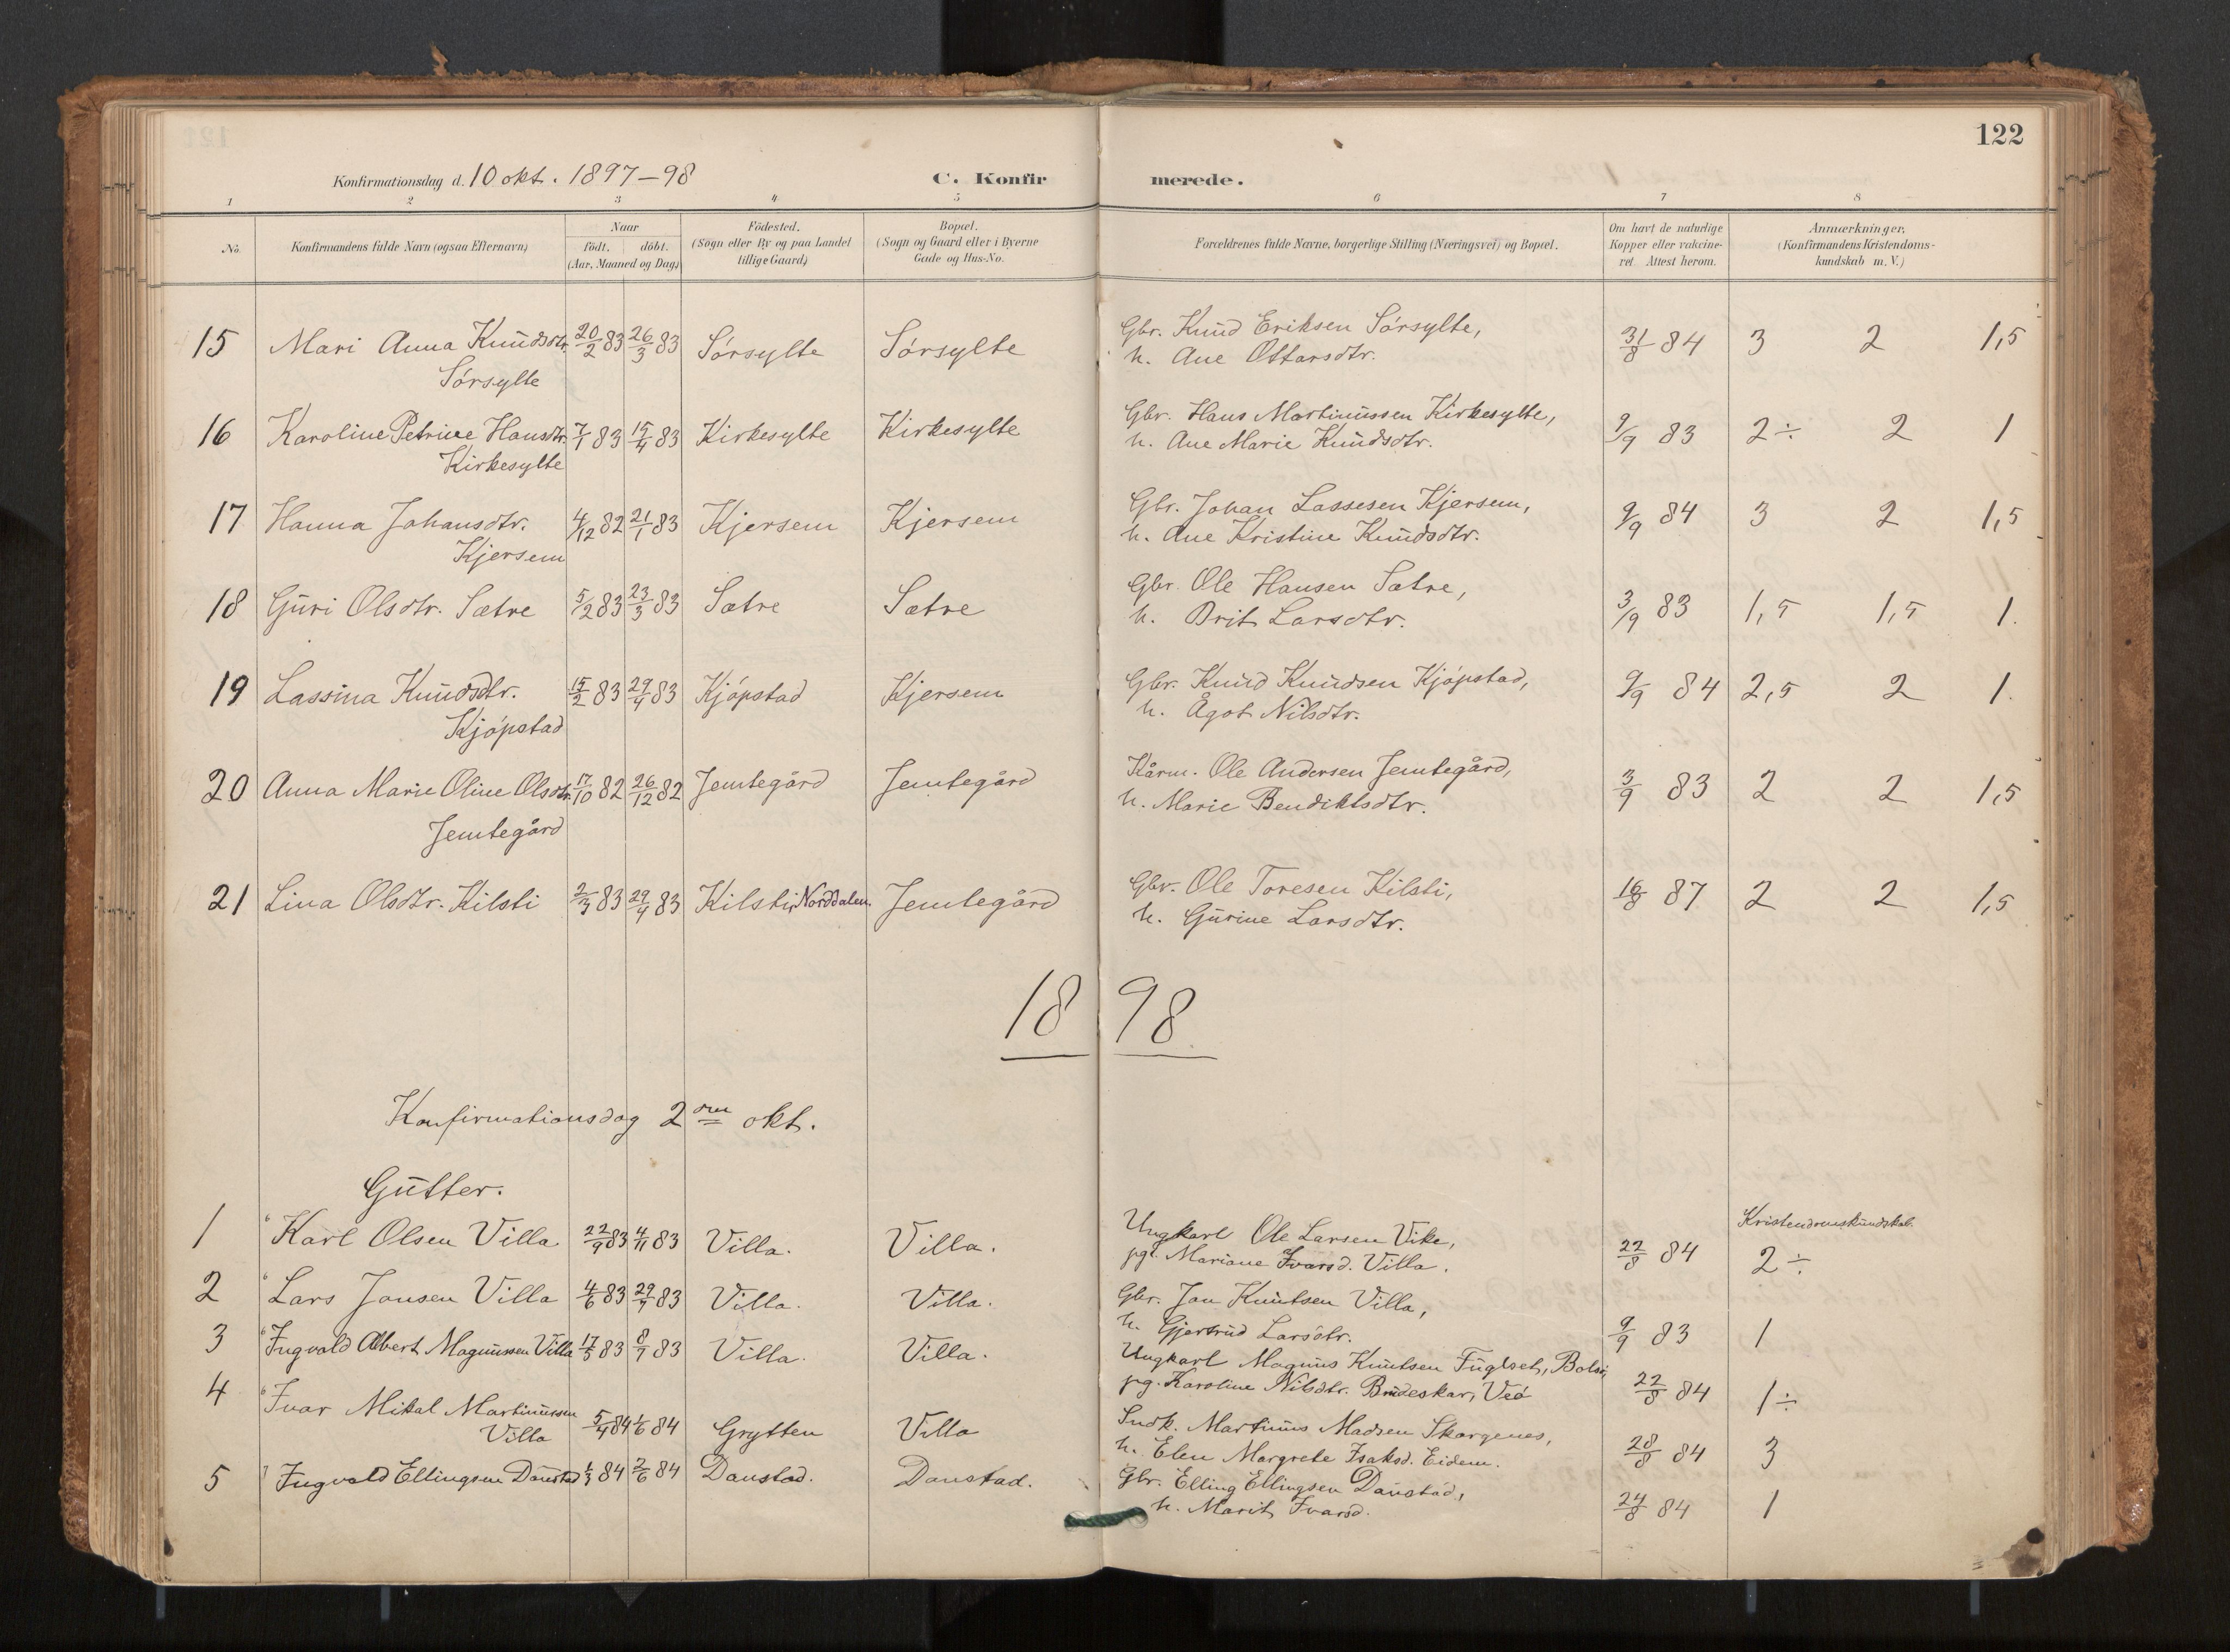 122
Konfirmationsdag d. 10 okt. 1897–98 C. Konfirmerede.
1 2 3 4 5 6 7 8
No. Konfirmandens fulde Navn (ogsaa Efternavn) Naar födt. döbt. (Aar, Maaned og Dag) Födested. (Sogn eller By og paa Landet tillige Gaard) Bopæl. (Sogn og Gaard eller i Byerne Gade og Hus-No. Forældrenes fulde Navne, borgerlige Stilling (Næringsvei) og Bopæl. Om havt de naturlige Kopper eller vakcineret. Attest herom. Anmærkninger, (Konfirmandens Kristendomskundskab m.V.)
15 Mari Anna Knudsdtr. 20/2 83 26/3 83 Sörsylte Sörsylte Gbr. Knud Eriksen Sörsylte, 31/8 84 3 2 1,5
Sörsylte h. Ane Ottarsdtr.
16 Karoline Petrine Hansdtr. 7/1 83 15/4 83 Kirkesylte Kirkesylte Gbr. Hans Martinussen Kirkesylte, 9/9 83 2÷ 2 1
Kirkesylte h. Ane Marie Knudsdtr.
17 Hanna Johansdtr. 4/12 82 21/1 83 Kjersem Kjersem Gbr. Johan Lassesen Kjersem, 9/9 84 3 2 1,5
Kjersem h. Ane Kristine Knudsdtr.
18 Guri Olsdtr. Sætre 5/2 83 23/3 83 Sætre Sætre Gbr. Ole Hansen Sætre, 3/9 83 1,5 1,5 1.
h. Brit Larsdtr.
19 Lassina Knudsdtr. 15/2 83 29/4 83 Kjöpstad Kjersem Gbr. Knud Knudsen Kjöpstad, 9/9 84 2,5 2 1.
Kjöpstad h. Ågot Nilsdtr.
20 Anna Marie Oline Olsdtr. 17/10 82 26/12 82 Jemtegård Jemtegård Kårm. Ole Andersen Jemtegård, 3/9 83 2 2 1,5
Jemtegård h. Marie Bendiktsdtr.
21 Lina Olsdtr. Kilsti 2/3 83 29/4 83 Kilsti, Norddalen. Jemtegård Gbr. Ole Toresen Kilsti, 16/8 87 2 2 1,5
h. Gurine Larsdtr.
1898
Konfirmationsdag 2den okt.
Gutter.
Kristendomskundskab.
1 Karl Olsen Villa 22/9 83 4/11 83 Villa. Villa. Ungkarl Ole Larsen Vike, 22/8 84 2÷
pg. Mariane Ivarsd. Villa.
2 Lars Jonsen Villa 4/6 83 29/7 83 Villa. Villa. Gbr. Jon Knutsen Villa, 9/9 83 1
h. Gjertrud Larsdtr.
3 Ingvald Albert Magnussen Villa 17/5 83 8/7 83 Villa. Villa. Ungkarl Magnus Knutsen Fuglset, Bolsö, 22/8 84 1÷
pg. Karoline Nilsdtr. Budeskar, Veö
4 Ivar Mikal Martinussen 5/4 84 1/6 84 Grytten Villa Indk. Martinus Madsen Skorgenes, 28/8 84 3
Villa h. Elen Margrete Isaksd. Eidem.
5 Ingvald Ellingsen Daustad 1/3 84 2/6 84 Daustad. Daustad. Gbr. Elling Ellingsen Daustad, 24/8 84 1
h. Marit Ivarsd.